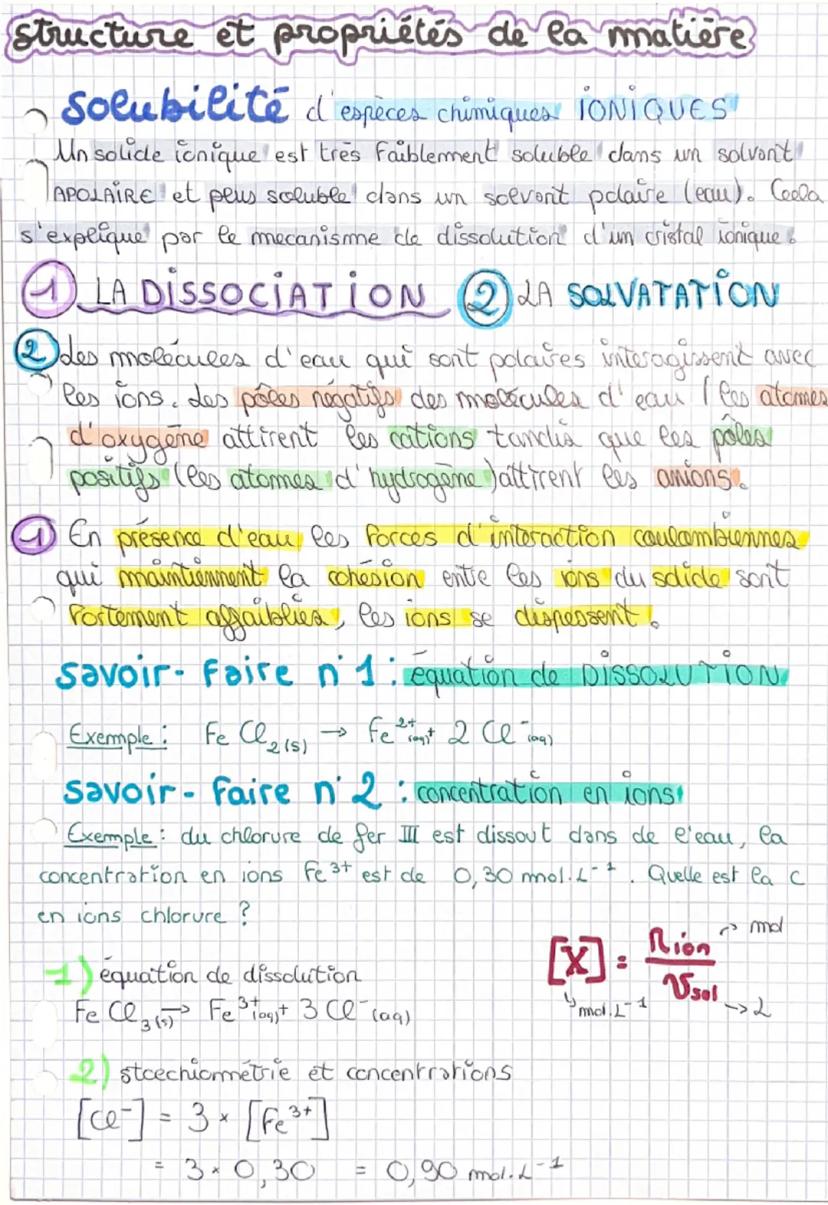 structure et propriétés de la matière
solubilité d'espèces chimiques IONIQUES
Un solide ionique est très faiblement soluble dans un solvant
APOLAIRE et peus soluble dans un solvant polaire (eau). Ceela
s'explique par le mecanisme de dissolution d'un cristal ionique.
1 LA DISSOCIATION 2 LA SOLVATATION
2 des molécules d'eau qui sont polaires interagissent avec
les ions. Les pôles négatifs des molécules d'eau (les atomes
d'oxygène attirent les cations tandis que les pôles
positifs (les atomes d'hydrogène) attirent les anions.
1 En présence d'eau les forces d'interaction coulombiennes
qui maintiennent la cohésion entre les ions du solide sont
fortement affaiblies, les ions se dispessent.
savoir-faire n°1 : équation de DISSOLUTION
Exemple : FeCl₂(s) → Fe²⁺(aq) + 2 Cl⁻(aq)
savoir-faire n°2 : concentration en ions
Exemple : du chlorure de fer III est dissout dans de l'eau, la
concentration en ions Fe³⁺ est de 0,30 mol.L⁻¹. Quelle est la c
en ions chlorure ?
[X] = nion / Vsol
→ mol
mol.L⁻¹
→ L
1) équation de dissolution
FeCl₃(s) → Fe³⁺(aq) + 3 Cl⁻(aq)
2) stoechiométrie et concentrations
[Cl⁻] = 3 × [Fe³⁺]
= 3 × 0,30 = 0,90 mol.L⁻¹